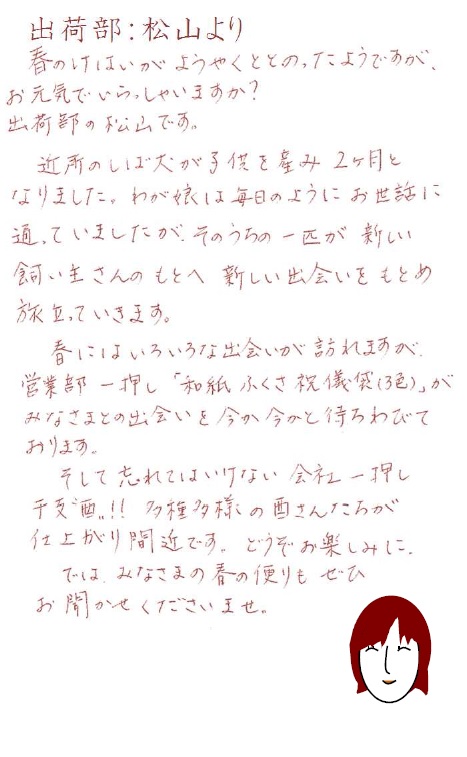 出荷部：松山より
春のけはいがようやくととのったようですが、
お元気でいらっしゃいますか？
出荷部の松山です。
近所のしば犬が子供を産み 2ヶ月と
なりました。わが娘は毎日のようにお世話に
通っていましたが、そのうちの一匹が新しい
飼い主さんのもとへ 新しい出会いをもとめ
旅立っていきます。
春にはいろいろな出会いが訪れますが、
営業部一押し「和紙ふくさ祝儀袋(3色)」が
みなさまとの出会いを今か今かと待ちわびて
おります。
そして忘れてはいけない 会社一押し
干支"酉"!! 多種多様の酉さんたちが
仕上がり間近です。どうぞお楽しみに、
では、みなさまの春の便りも ぜひ
お聞かせくださいませ。